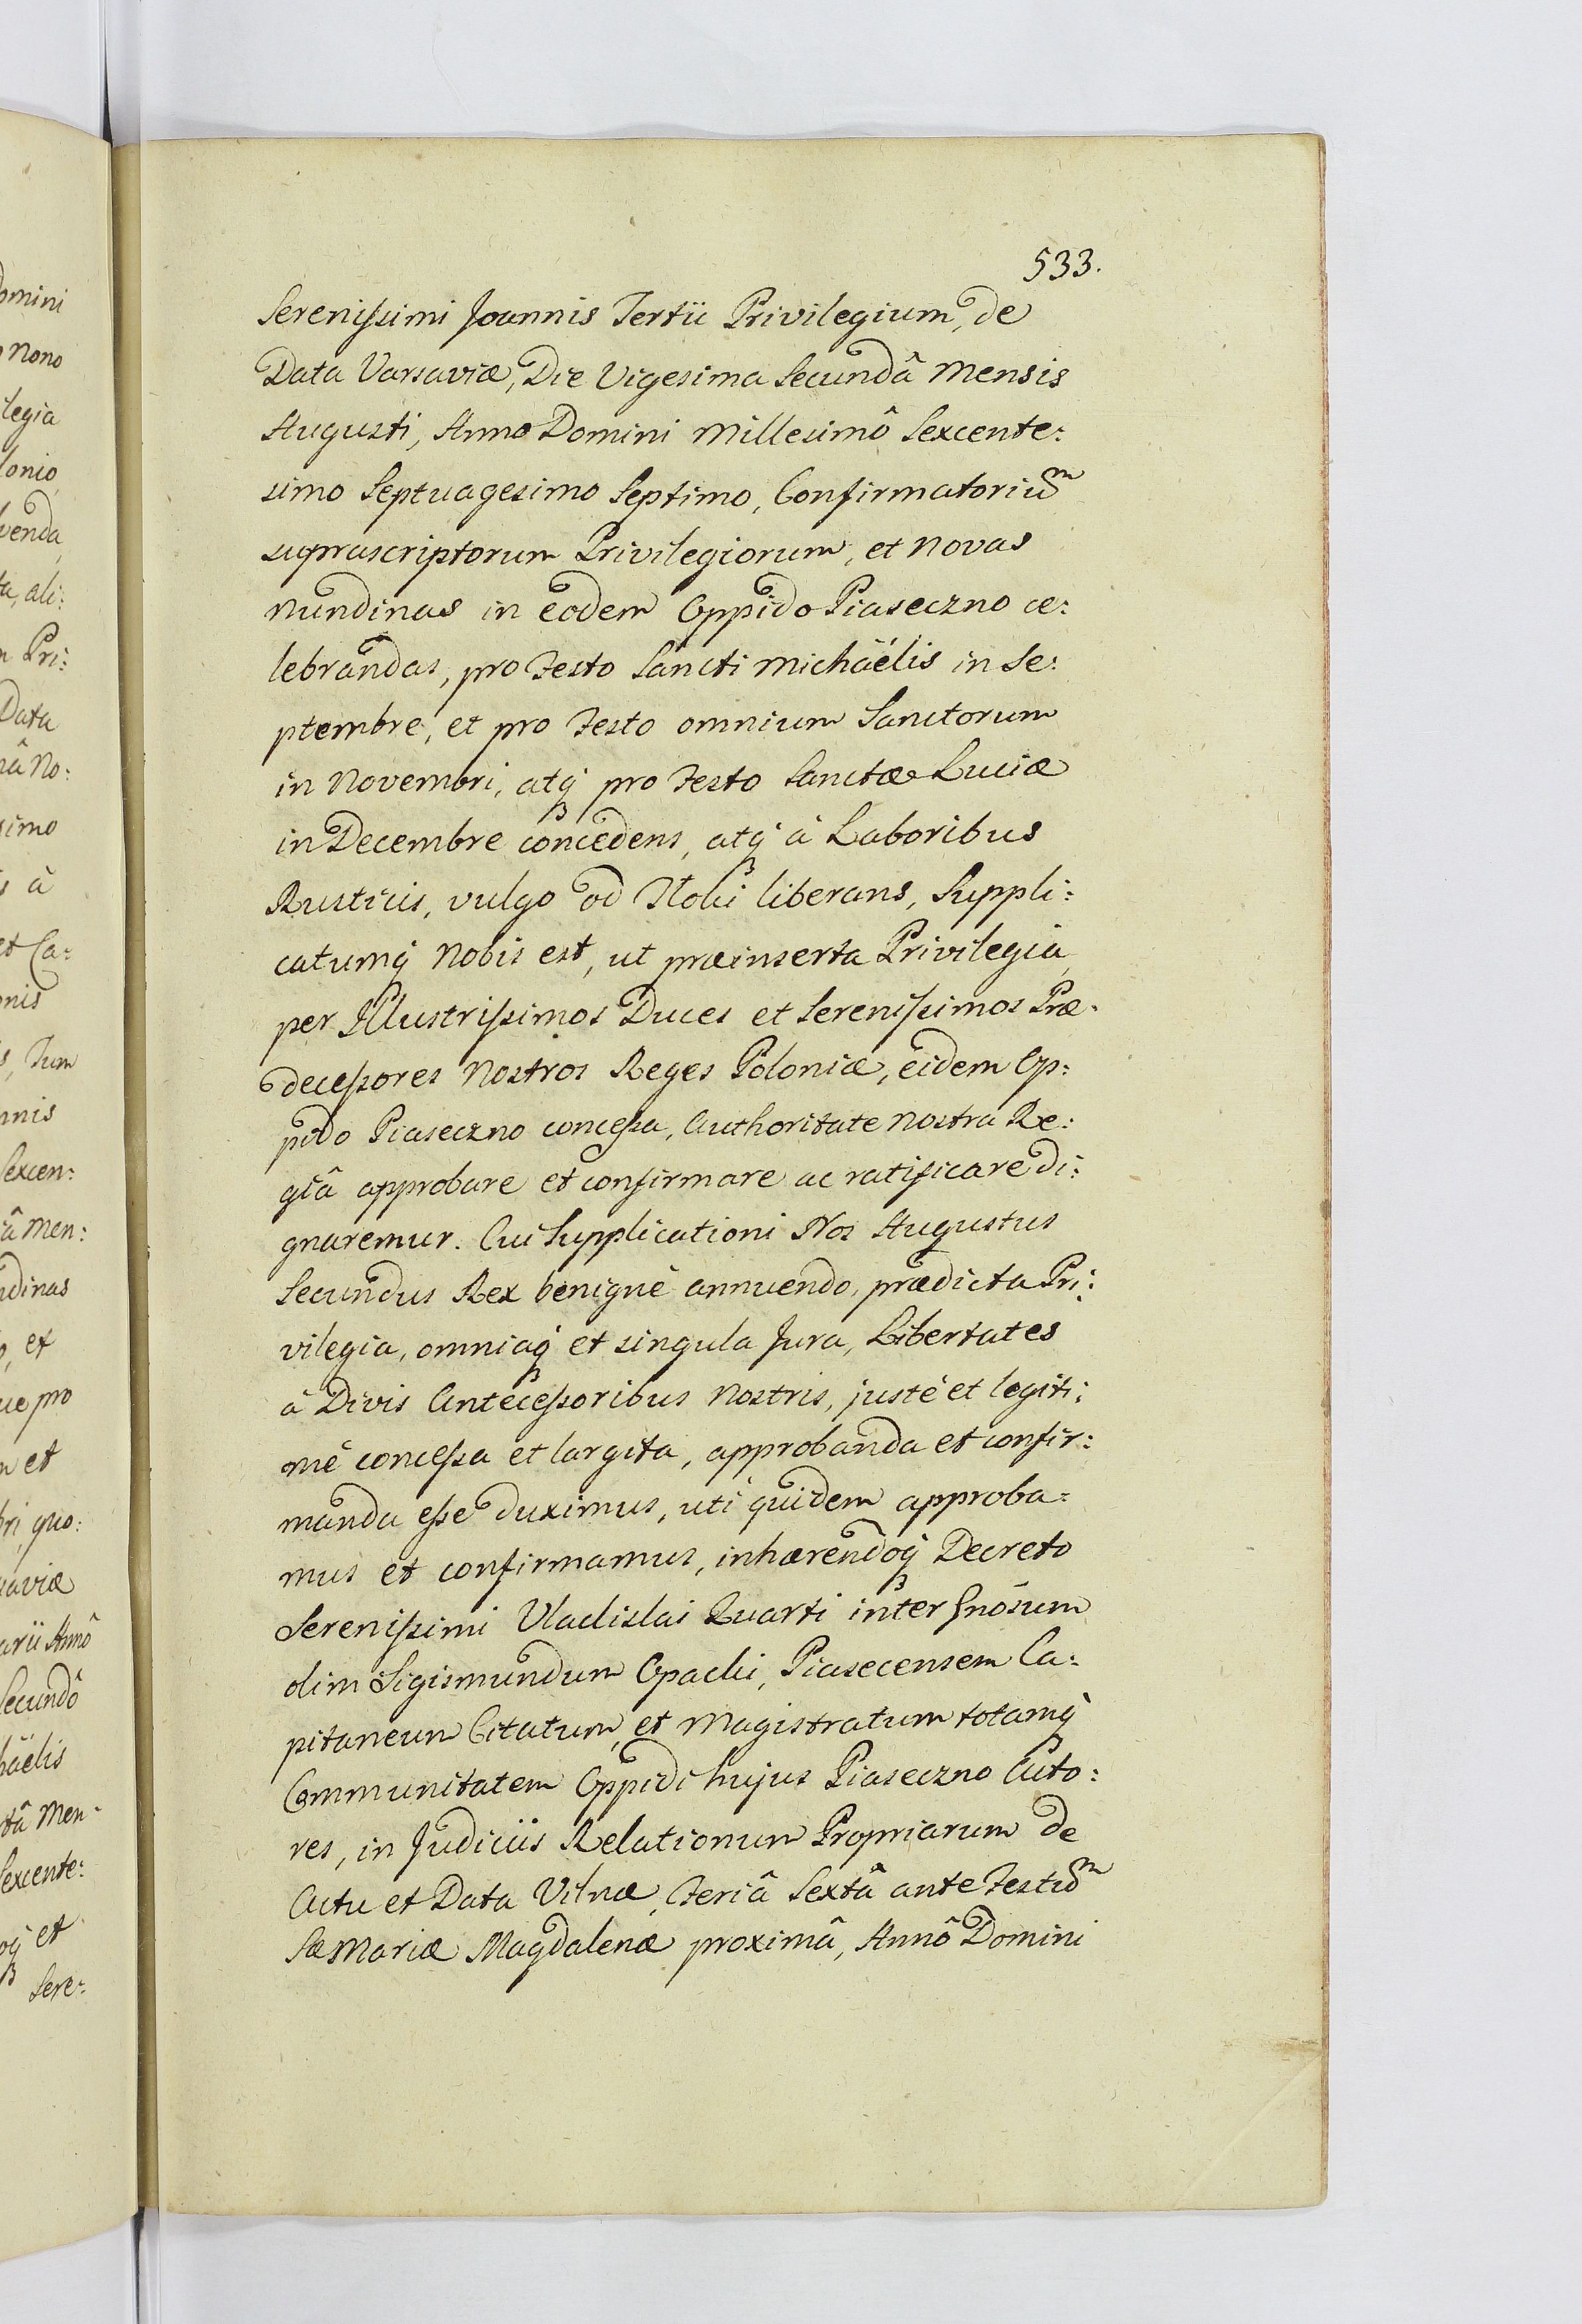 533.
Serenissimi Joannis Tertii Privilegium, de
Data Varsaviæ, Die Vigesima Secundâ Mensis
Augusti, Anno Domini Millesimô Sexcente:
simo Septuagesimo Septimo, Confirmatoriũm
suprascriptorum Privilegiorum, et novas
Nundinas in eodem Oppido Piaseczno ce:
lebrandas, pro Festo Sancti Michäelis in Se:
ptembre, et pro Festo omnium Sanctorum
in Novembri, atq́ pro Festo Sanctæ Luciæ
in Decembre concedens, atq́ à Laboribus
Rusticis, vulgo od Tłoki liberans, Suppli:
catumq́ Nobis est, ut præinserta Privilegia,
per Illustrissimos Duces et Serenissimos Præ:
decessores Nostros Reges Poloniæ, eidem Op:
pido Piaseczno concessa, Authoritate Nostra Re:
giâ approbare et confirmare ac ratificare di:
gnaremur. Cui Supplicationi Nos Augustus
Secundus Rex benignè annuendo, prædicta Pri:
vilegia, omniaq́ et singula Jura, Libertates
à Divis Antecessoribus Nostris, justè et legiti:
mè concessa et largita, approbanda et confir:
manda esse duximus, uti quidem approba:
mus et confirmamus, inhærendoq́ Decreto
Serenissimi Vladislai Quarti inter Gnõsum
olim Sigismundum Opacki, Piasecensem Ca:
pitaneum Citatum, et Magistratum totamq́
Communitatem Oppidi hujus Piaseczno Acto:
res, in Judiciis Relationum Propriarum de
Actu et Data Vilnæ, Feriâ Sextâ ante Festũm
Sæ Mariæ Magdalenæ proximâ, Annô Domini
omini
nono
legia
lonio,
venda,
ta, ali:
m Pri:
Data
nâ No:
simo
s à
et Ca:
onis
s, Tum
nnis
Sexcen:
iâ Men:
ndinas
o, et
ue pro
m et
bri, quo:
saviæ
arii Annô
Secundô
häelis
tâ Men:
Sexcente:
oq́ et
Sere: